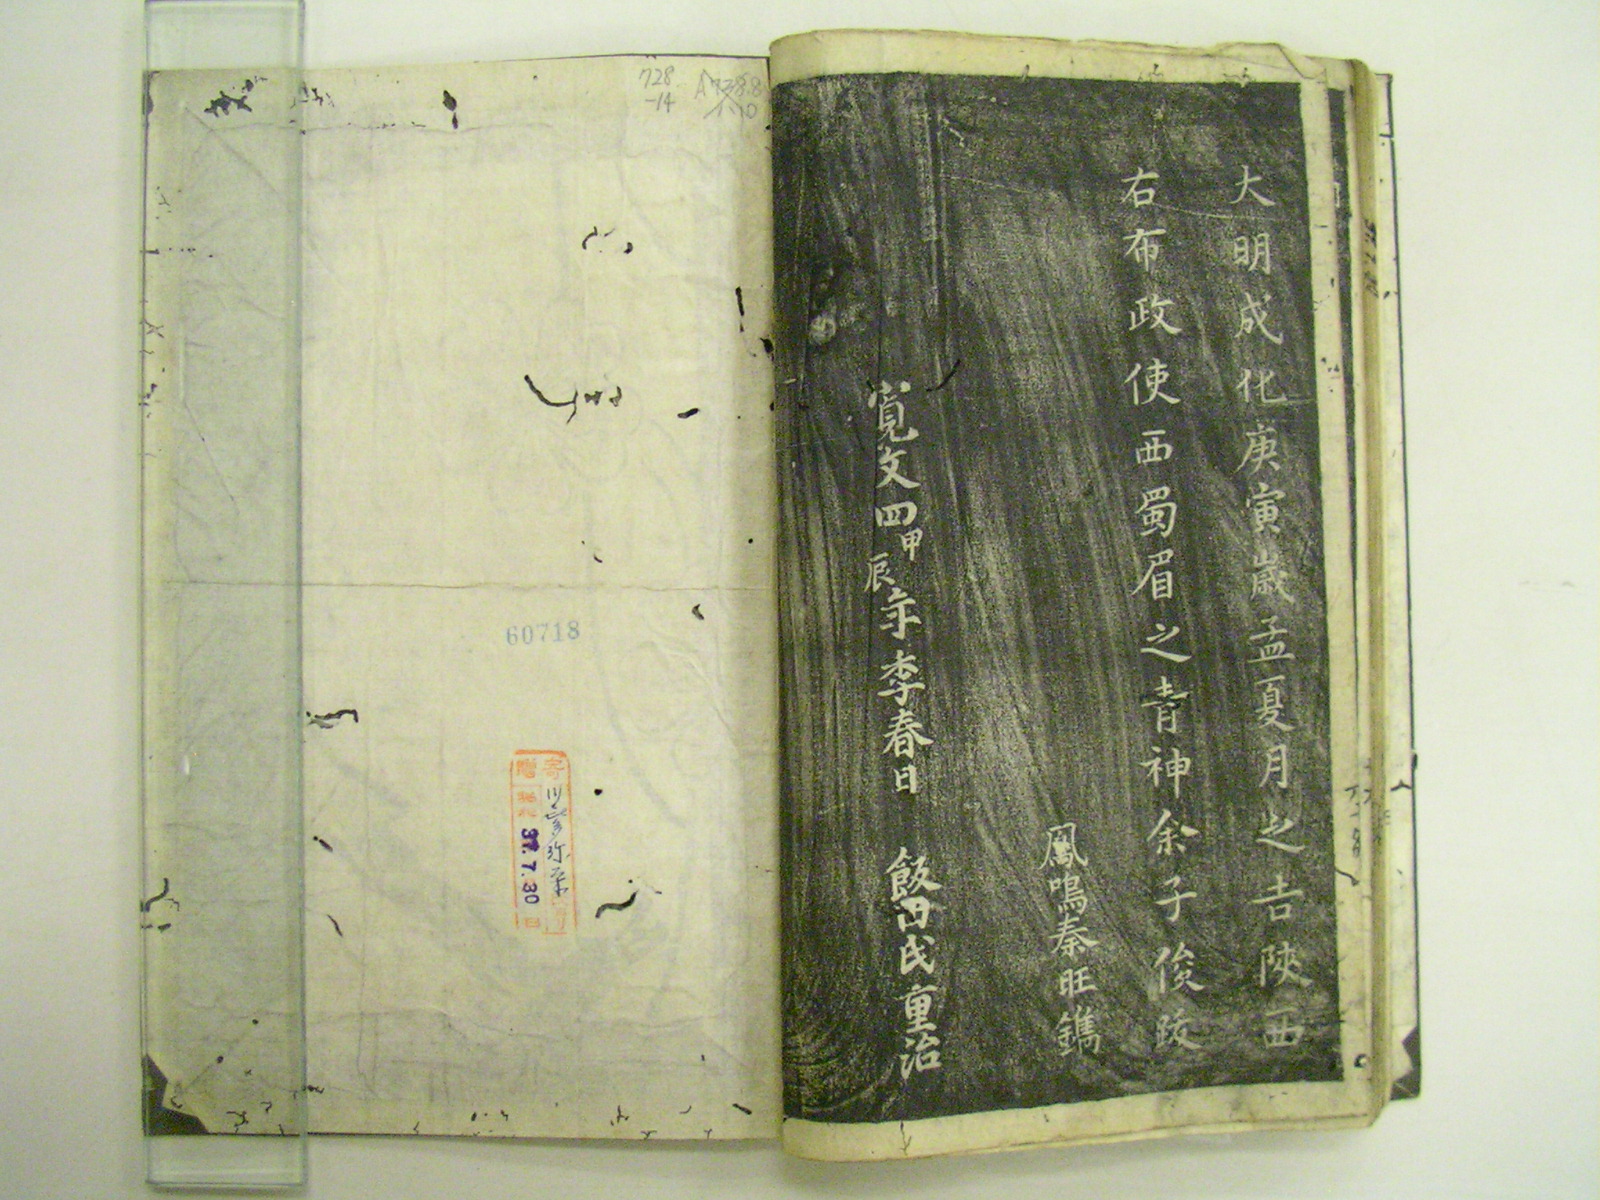 大明成化庚寅歲孟夏月之吉陝西
右布政使西蜀眉之青神余子俊跋
鳳鳴秦旺鐫
寛文四甲辰年季春日　飯田氏重治
728
-14
60718
寄贈
37.7.30